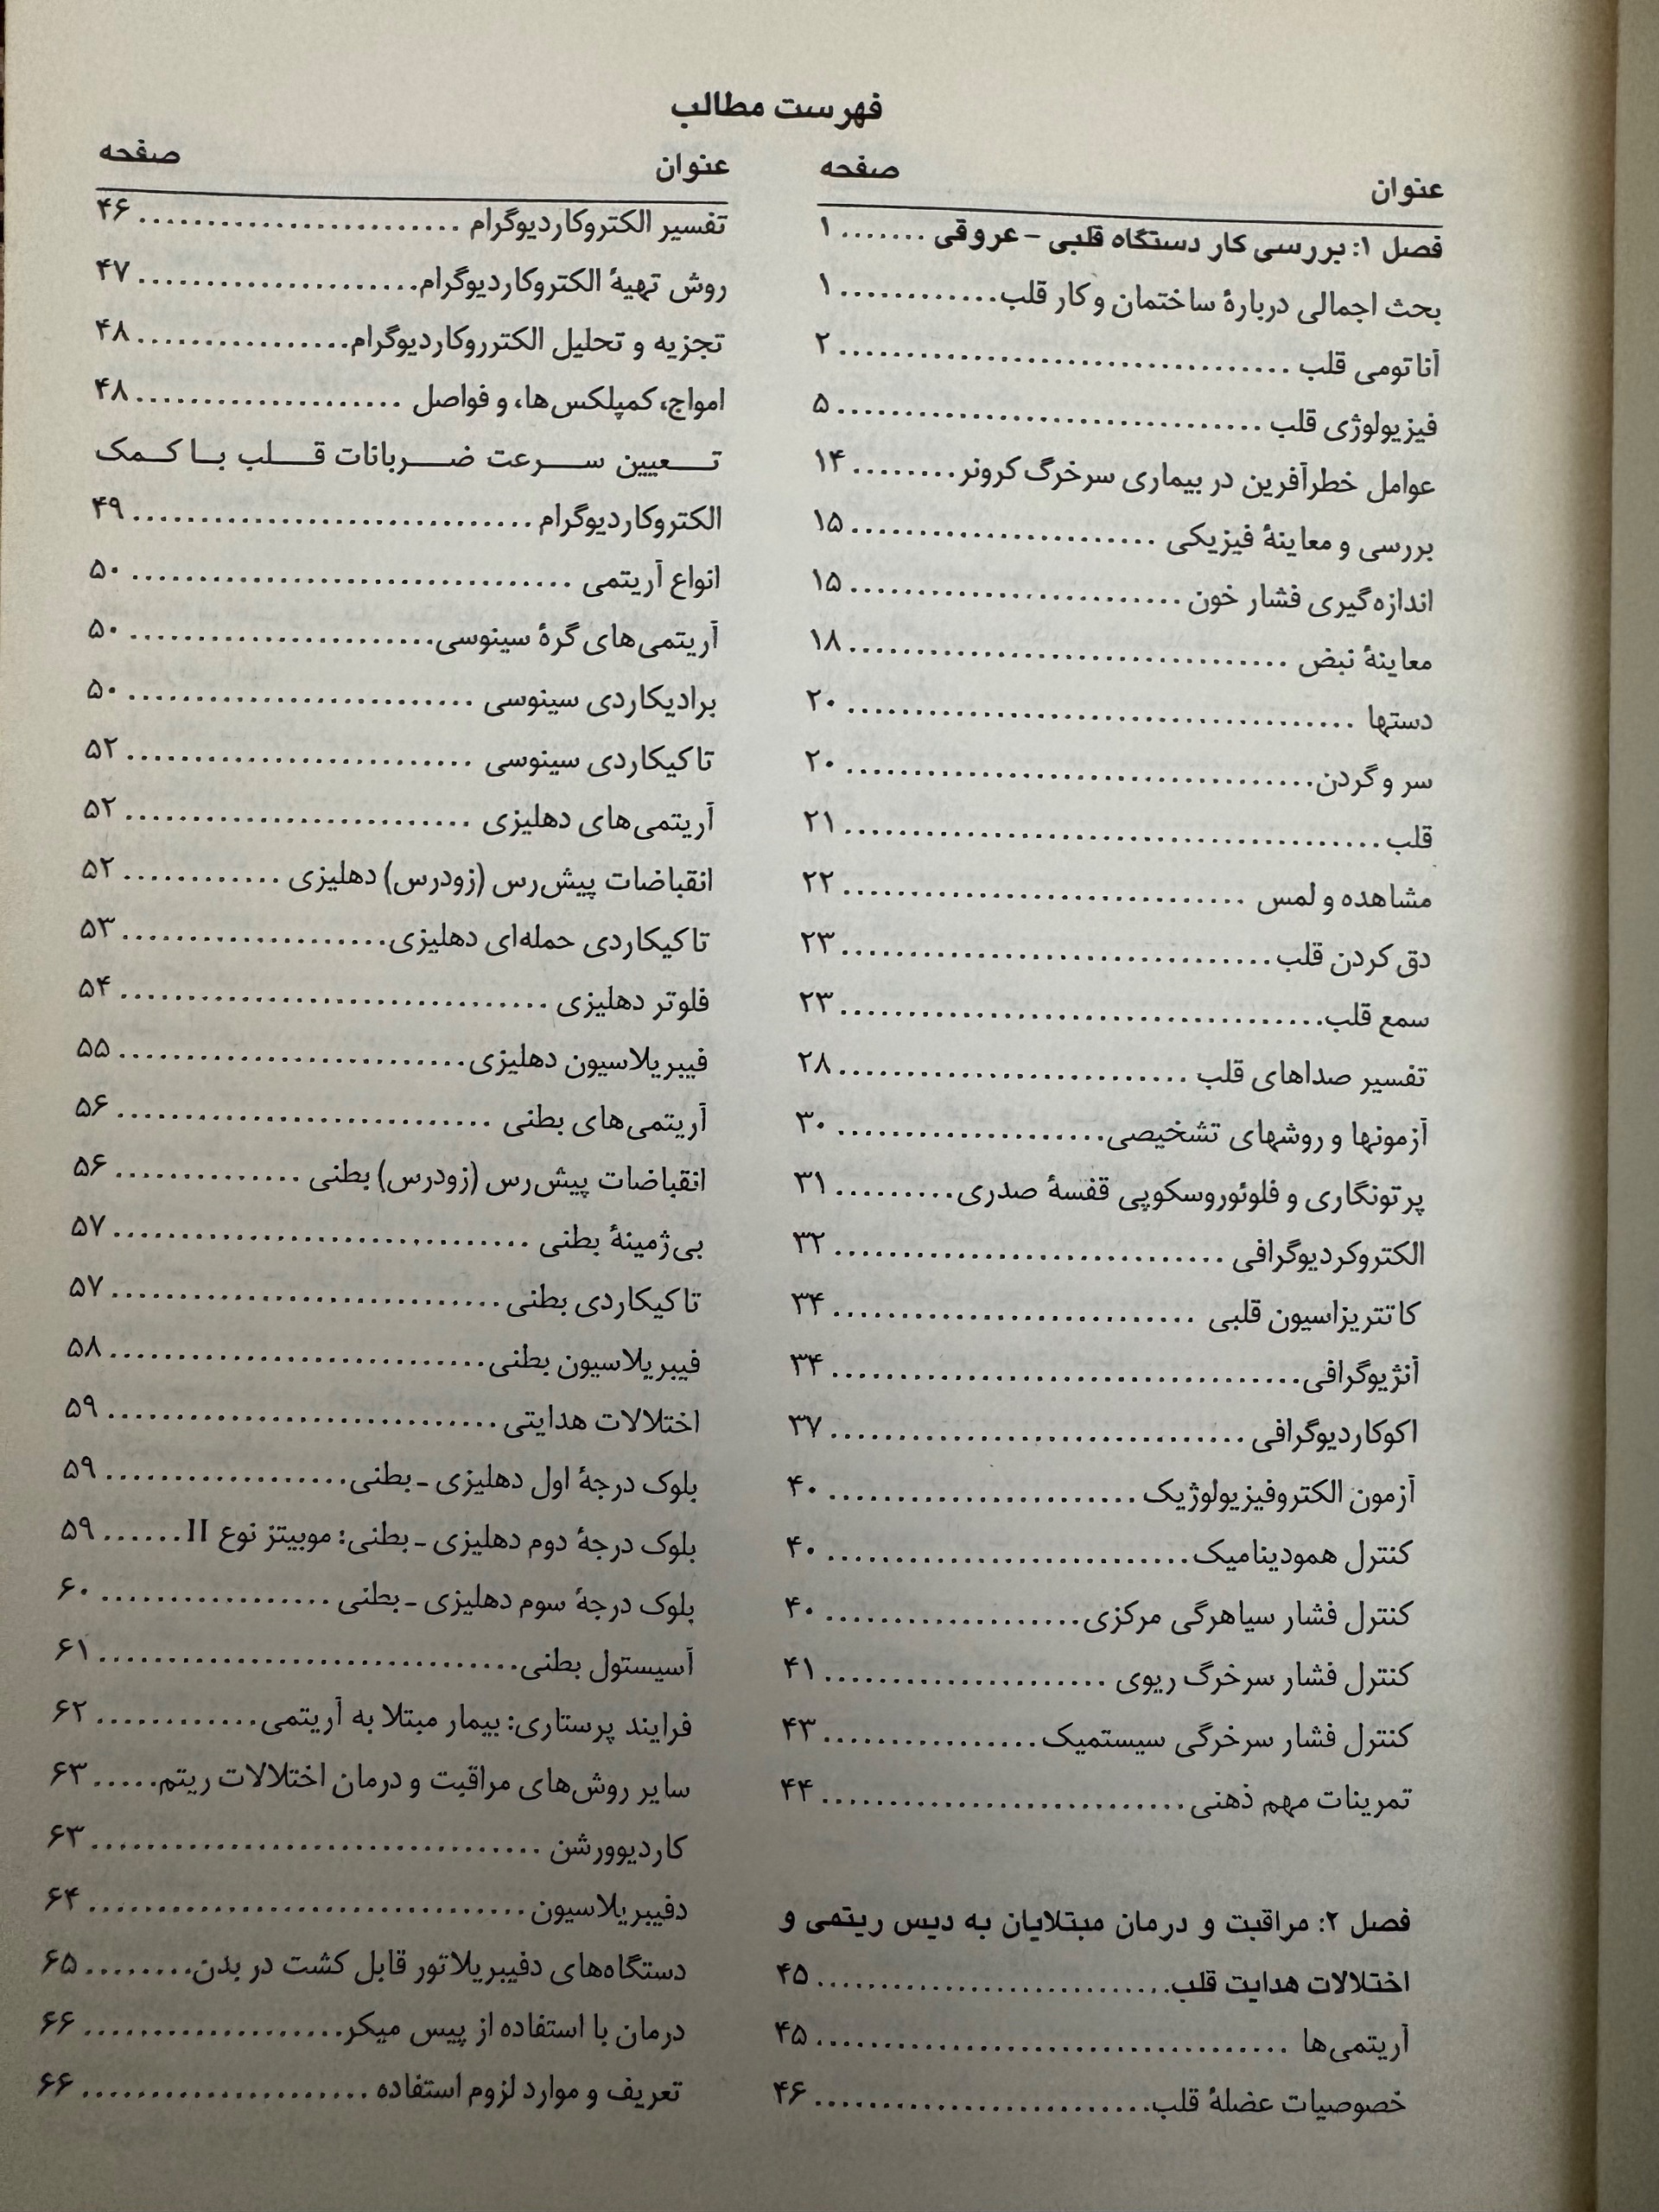 فهرست مطالب
عنوان صفحه
فصل ۱: بررسی کار دستگاه قلبی - عروقی ....... ۱
بحث اجمالی دربارهٔ ساختمان و کار قلب............ ۱
آناتومی قلب ................................. ۲
فیزیولوژی قلب ............................... ۵
عوامل خطرآفرین در بیماری سرخرگ کرونر........ ۱۴
بررسی و معاینهٔ فیزیکی ....................... ۱۵
اندازه‌گیری فشار خون ......................... ۱۵
معاینهٔ نبض ................................ ۱۸
دستها ..................................... ۲۰
سر و گردن.................................. ۲۰
قلب ....................................... ۲۱
مشاهده و لمس .............................. ۲۲
دق کردن قلب ................................ ۲۳
سمع قلب................................... ۲۳
تفسیر صداهای قلب .......................... ۲۸
آزمونها و روشهای تشخیصی.................... ۳۰
پرتونگاری و فلوئوروسکوپی قفسهٔ صدری......... ۳۱
الکتروکردیوگرافی ............................. ۳۲
کاتتریزاسیون قلبی ........................... ۳۴
آنژیوگرافی................................... ۳۴
اکوکاردیوگرافی ............................... ۳۷
آزمون الکتروفیزیولوژیک ....................... ۴۰
کنترل همودینامیک........................... ۴۰
کنترل فشار سیاهرگی مرکزی................... ۴۰
کنترل فشار سرخرگ ریوی ..................... ۴۱
کنترل فشار سرخرگی سیستمیک................ ۴۳
تمرینات مهم ذهنی ........................... ۴۴
فصل ۲: مراقبت و درمان مبتلایان به دیس ریتمی و
اختلالات هدایت قلب.......................... ۴۵
آریتمی‌ها ................................... ۴۵
خصوصیات عضلهٔ قلب......................... ۴۶
عنوان صفحه
تفسیر الکتروکاردیوگرام ........................ ۴۶
روش تهیهٔ الکتروکاردیوگرام..................... ۴۷
تجزیه و تحلیل الکترروکاردیوگرام................ ۴۸
امواج، کمپلکس‌ها، و فواصل .................... ۴۸
تـــعیین ســـرعت ضـــربانات قـــلب بـا کــمک
الکتروکاردیوگرام .............................. ۴۹
انواع آریتمی ................................. ۵۰
آریتمی‌های گرهٔ سینوسی....................... ۵۰
برادیکاردی سینوسی .......................... ۵۰
تاکیکاردی سینوسی .......................... ۵۲
آریتمی‌های دهلیزی .......................... ۵۲
انقباضات پیش‌رس (زودرس) دهلیزی ............ ۵۲
تاکیکاردی حمله‌ای دهلیزی.................... ۵۳
فلوتر دهلیزی ................................ ۵۴
فیبریلاسیون دهلیزی.......................... ۵۵
آریتمی‌های بطنی ............................ ۵۶
انقباضات پیش‌رس (زودرس) بطنی .............. ۵۶
بی‌ژمینهٔ بطنی ............................... ۵۷
تاکیکاردی بطنی............................. ۵۷
فیبریلاسیون بطنی............................ ۵۸
اختلالات هدایتی ............................. ۵۹
بلوک درجهٔ اول دهلیزی ـ بطنی.................. ۵۹
بلوک درجهٔ دوم دهلیزی ـ بطنی: موبیتز نوع II...... ۵۹
بلوک درجهٔ سوم دهلیزی ـ بطنی ................. ۶۰
آسیستول بطنی............................... ۶۱
فرایند پرستاری: بیمار مبتلا به آریتمی............ ۶۲
سایر روش‌های مراقبت و درمان اختلالات ریتم..... ۶۳
کاردیوورشن ................................. ۶۳
دفیبریلاسیون................................ ۶۴
دستگاه‌های دفیبریلاتور قابل کشت در بدن........ ۶۵
درمان با استفاده از پیس میکر................... ۶۶
تعریف و موارد لزوم استفاده ..................... ۶۶